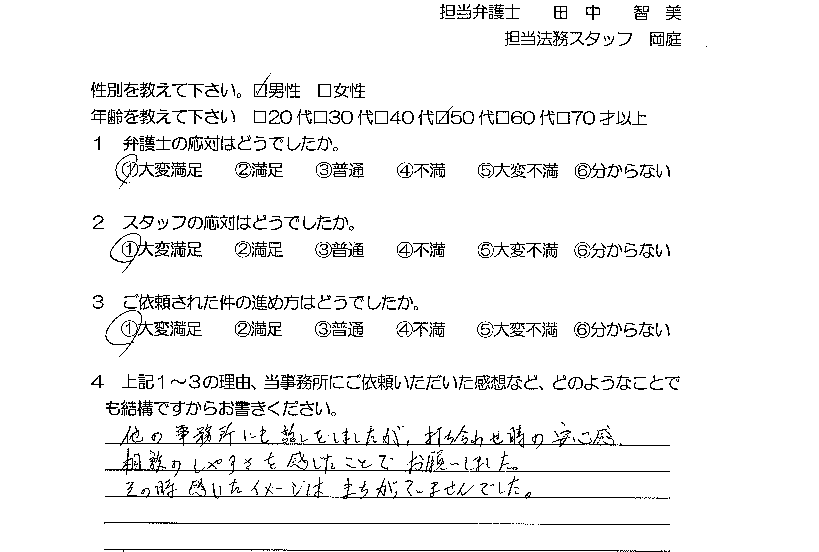 担当弁護士 田中 智美
担当法務スタッフ 岡庭
性別を教えて下さい。☑男性 □女性
年齢を教えて下さい □20代□30代□40代☑50代□60代□70才以上
1 弁護士の応対はどうでしたか。
①大変満足 ②満足 ③普通 ④不満 ⑤大変不満 ⑥分からない
2 スタッフの応対はどうでしたか。
①大変満足 ②満足 ③普通 ④不満 ⑤大変不満 ⑥分からない
3 ご依頼された件の進め方はどうでしたか。
①大変満足 ②満足 ③普通 ④不満 ⑤大変不満 ⑥分からない
4 上記1～3の理由、当事務所にご依頼いただいた感想など、どのようなことで
も結構ですからお書きください。
他の事務所にも話しをしましたが、打ち合わせ時の安心感、
相談のしやすさを感じたことでお願いしました。
その時感じたイメージはまちがっていませんでした。